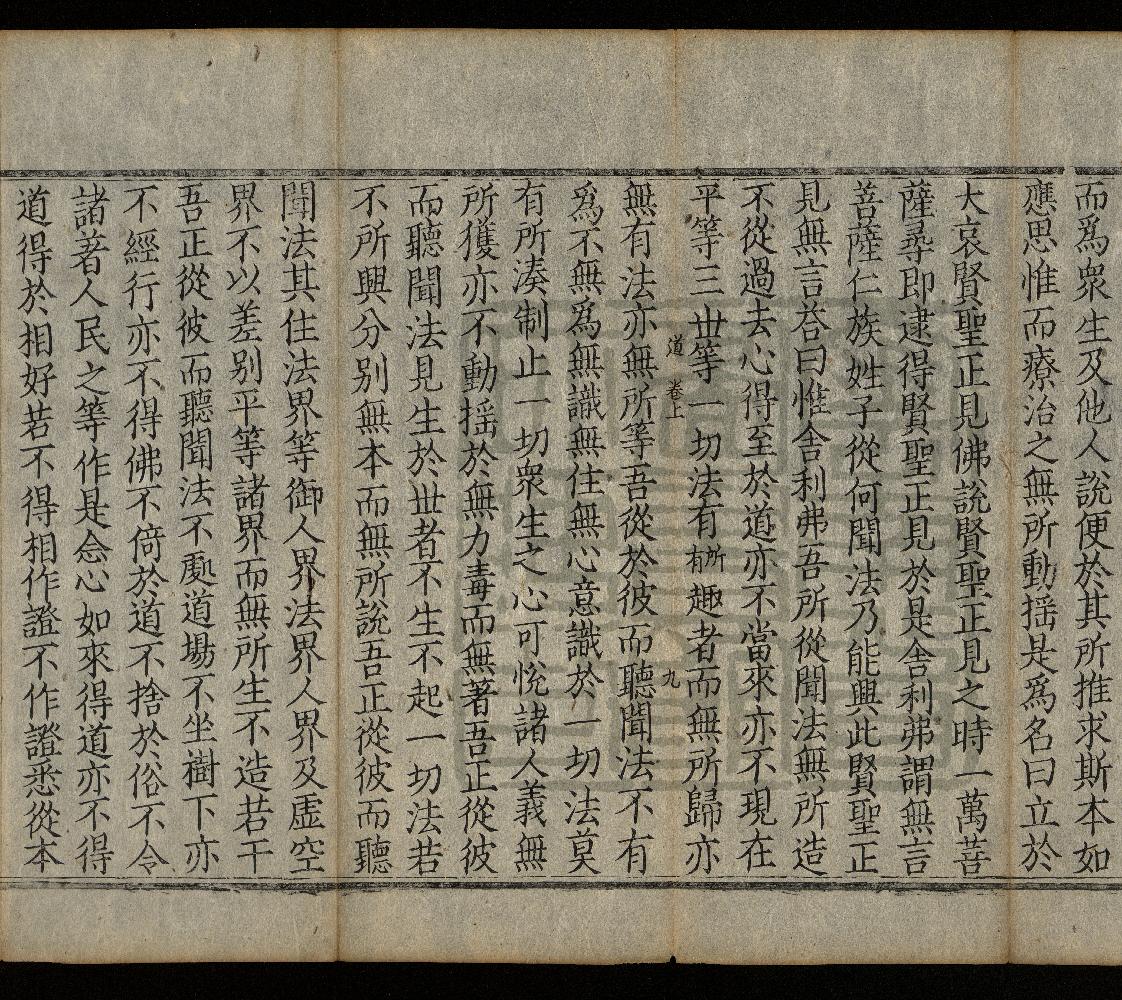 而爲衆生及他人說便於其所推求斯本如
應思惟而療治之無所動揺是爲名曰立於
大哀賢聖正見佛說賢聖正見之時一萬菩
薩尋即逮得賢聖正見於是舍利弗謂無言
菩薩仁族姓子從何聞法乃能興此賢聖正
見無言荅曰惟舍利弗吾所從聞法無所造
不從過去心得至於道亦不當來亦不現在
平等三世等一切法有所有趣者而無所歸亦
道 卷上 九
無有法亦無所等吾從於彼而聽聞法不有
爲不無爲無識無住無心意識於一切法莫
有所湊制止一切衆生之心可悅諸人義無
所獲亦不動揺於無力毒而無著吾正從彼
而聽聞法見生於世者不生不起一切法若
不所興分别無本而無所說吾正從彼而聽
聞法其住法界等御人界法界人界及虛空
界不以差别平等諸界而無所生不造若干
吾正從彼而聽聞法不處道場不坐樹下亦
不經行亦不得佛不倚於道不捨於俗不令
諸著人民之等作是念心如來得道亦不得
道得於相好若不得相作證不作證悉從本